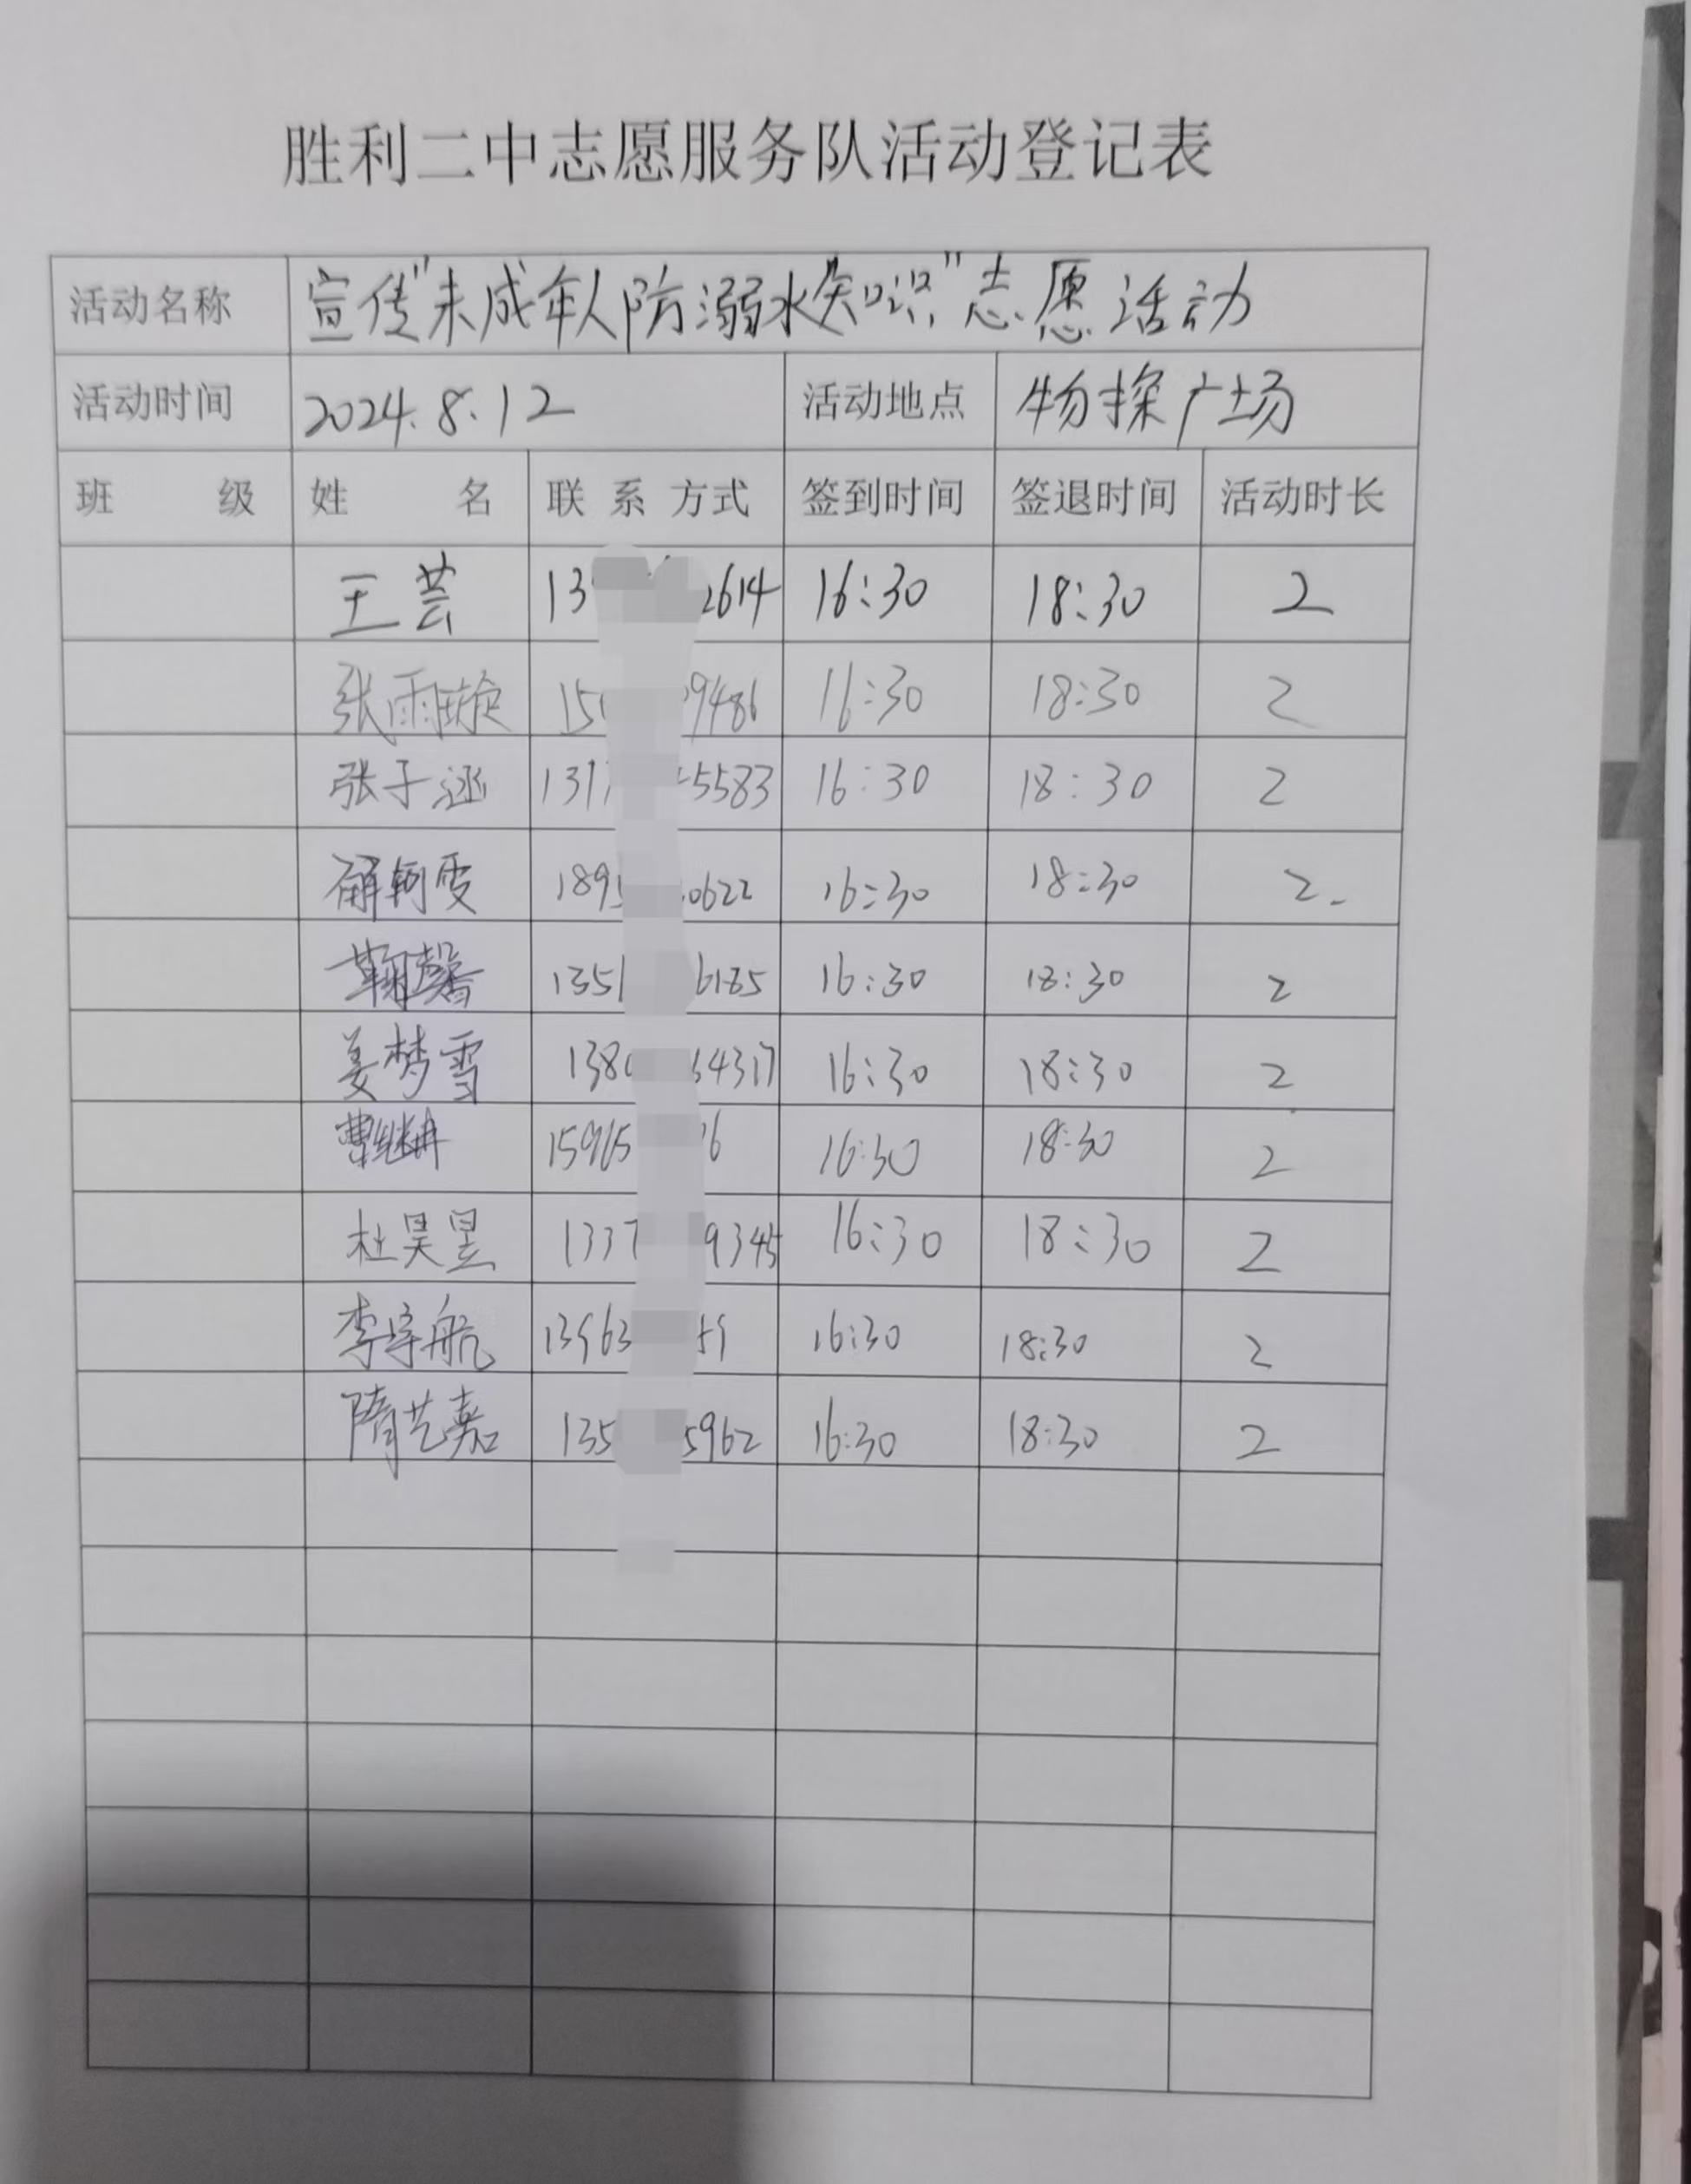 胜利二中志愿服务队活动登记表
活动名称 宣传"未成年人防溺水知识"志愿活动
活动时间 2024.8.12 活动地点 物探广场
班 级 姓 名 联 系 方式 签到时间 签退时间 活动时长
王芸 13 2614 16:30 18:30 2
张雨 15 9486 16:30 18:30 2
张子涵 131 5583 16:30 18:30 2
解 雯 189 0622 16:30 18:30 2
鞠馨 1351 6185 16:30 18:30 2
姜梦雪 138 4317 16:30 18:30 2
曹继 15965 6 16:30 18:30 2
杜昊昱 1337 9345 16:30 18:30 2
李宇航 13963 59 16:30 18:30 2
隋艺嘉 135 5962 16:30 18:30 2